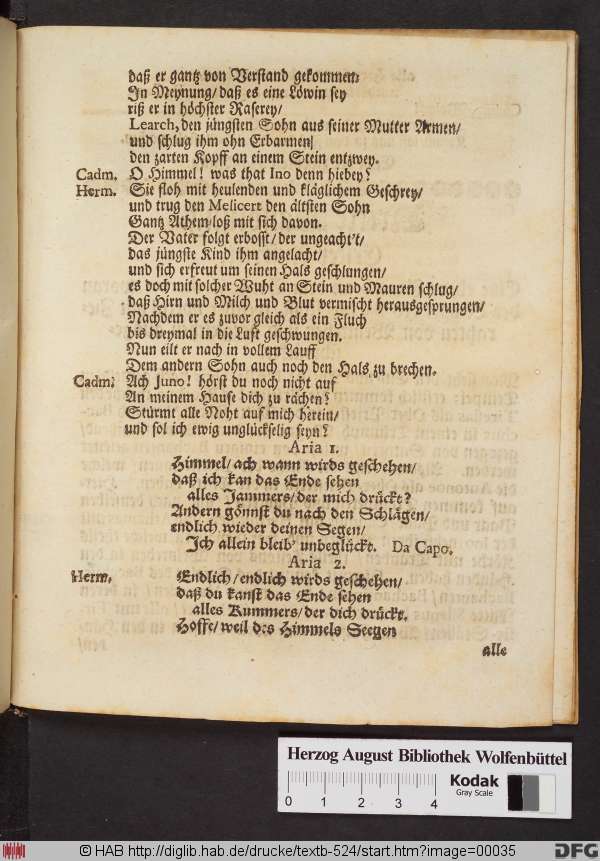 daß er gantz von Verstand gekommen:
In Meynung/ daß es eine Löwin sey
riß er in höchster Raserey/
Learch, den jüngsten Sohn aus seiner Mutter Armen/
und schlug ihm ohn Erbarmen/
den zarten Kopff an einem Stein entzwey.
Cadm. O Himmel! was that Ino denn hiebey?
Herm. Sie floh mit heulenden und kläglichem Geschrey/
und trug den Melicert den ältsten Sohn
Gantz Athem/loß mit sich davon.
Der Vater folgt erbosst/ der ungeacht't/
das jüngste Kind ihm angelacht/
und sich erfreut um seinen Hals geschlungen/
es doch mit solcher Wuht an Stein und Mauren schlug/
daß Hirn und Milch und Blut vermischt herausgesprungen/
Nachdem er es zuvor gleich als ein Fluch
bis dreymal in die Luft geschwungen.
Nun eilt er nach in vollem Lauff
Dem andern Sohn auch noch den Hals zu brechen.
Cadm. Ach Juno! hörst du noch nicht auf
An meinem Hause dich zu rächen?
Stürmt alle Noht auf mich herein/
und sol ich ewig unglückselig seyn?
Aria 1.
Himmel/ ach wann wirds geschehen/
daß ich kan das Ende sehen
alles Jammers/ der mich drückt?
Andern gönnst du nach den Schlägen/
endlich wieder deinen Segen/
Ich allein bleib' unbeglückt. Da Capo.
Aria 2.
Herm. Endlich/ endlich wirds geschehen/
daß du kanst das Ende sehen
alles Kummers/ der dich drückt.
Hoffe/ weil des Himmels Seegen
alle
Herzog August Bibliothek Wolfenbüttel
Kodak
Gray Scale
0 1 2 3 4
© HAB http://diglib.hab.de/drucke/textb-524/start.htm?image=00035
DFG